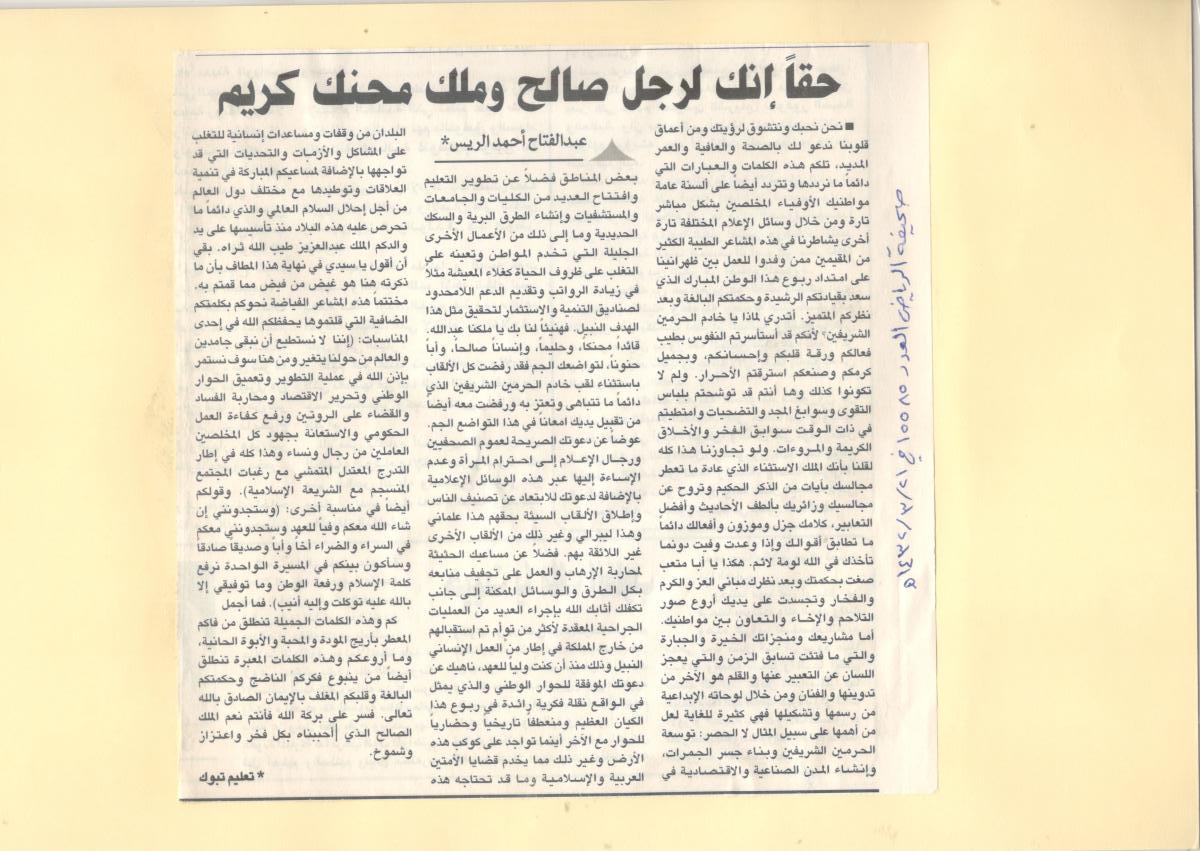 حقاً إنك لرجل صالح وملك محنك كريم
عبدالفتاح أحمد الريس*
■ نحن نحبك ونتشوق لرؤيتك ومن أعماق
قلوبنا ندعو لك بالصحة والعافية والعمر
المديد، تلكم هذه الكلمات والعبارات التي
دائماً ما نرددها وتتردد أيضاً على ألسنة عامة
مواطنيك الأوفياء المخلصين بشكل مباشر
تارة ومن خلال وسائل الإعلام المختلفة تارة
أخرى يشاطرنا في هذه المشاعر الطيبة الكثير
من المقيمين ممن وفدوا للعمل بين ظهرانينا
على امتداد ربوع هذا الوطن المبارك الذي
سعد بقيادتكم الرشيدة وحكمتكم البالغة وبعد
نظركم المتميز. أتدري لماذا يا خادم الحرمين
الشريفين؟ لأنكم قد استأسرتم النفوس بطيب
فعالكم ورقة قلبكم وإحسانكم، وبجميل
كرمكم وصنعكم استرقتم الأحرار. ولم لا
تكونوا كذلك وها أنتم قد توشحتم بلباس
التقوى وسوابغ المجد والتضحيات وامتطيتم
في ذات الوقت سوابق الفخر والأخلاق
الكريمة والمروءات. ولو تجاوزنا هذا كله
لقلنا بأنك الملك الاستثناء الذي عادة ما تعطر
مجالسك بآيات من الذكر الحكيم وتروح عن
مجالسيك وزائريك بألطف الأحاديث وأفضل
التعابير، كلامك جزل وموزون وأفعالك دائماً
ما تطابق أقوالك وإذا وعدت وفيت دونما
تأخذك في الله لومة لائم. هكذا يا أبا متعب
صغت بحكمتك وبعد نظرك مباني العز والكرم
والفخار وتجسدت على يديك أروع صور
التلاحم والإخاء والتعاون بين مواطنيك.
أما مشاريعك ومنجزاتك الخيرة والجبارة
والتي ما فتئت تسابق الزمن والتي يعجز
اللسان عن التعبير عنها والقلم هو الآخر من
تدوينها والفنان ومن خلال لوحاته الإبداعية
من رسمها وتشكيلها فهي كثيرة للغاية لعل
من أهمها على سبيل المثال لا الحصر: توسعة
الحرمين الشريفين وبناء جسر الجمرات،
وإنشاء المدن الصناعية والاقتصادية في
بعض المناطق فضلاً عن تطوير التعليم
وافتتاح العديد من الكليات والجامعات
والمستشفيات وإنشاء الطرق البرية والسكك
الحديدية وما إلى ذلك من الأعمال الأخرى
الجليلة التي تخدم المواطن وتعينه على
التغلب على ظروف الحياة كغلاء المعيشة مثلاً
في زيادة الرواتب وتقديم الدعم اللامحدود
لصناديق التنمية والاستثمار لتحقيق مثل هذا
الهدف النبيل. فهنيئاً لنا بك يا ملكنا عبدالله.
قائداً محنكاً، وحليماً، وإنساناً صالحاً، وأباً
حنوناً، لتواضعك الجم فقد رفضت كل الألقاب
باستثناء لقب خادم الحرمين الشريفين الذي
دائماً ما تتباهى وتعتز به ورفضت معه أيضاً
من تقبيل يديك امعاناً في هذا التواضع الجم.
عوضاً عن دعوتك الصريحة لعموم الصحفيين
ورجال الإعلام إلى احترام المرأة وعدم
الإساءة إليها عبر هذه الوسائل الإعلامية
بالإضافة لدعوتك للابتعاد عن تصنيف الناس
وإطلاق الألقاب السيئة بحقهم هذا علماني
وهذا ليبرالي وغير ذلك من الألقاب الأخرى
غير اللائقة بهم. فضلاً عن مساعيك الحثيثة
لمحاربة الإرهاب والعمل على تجفيف منابعه
بكل الطرق والوسائل الممكنة إلى جانب
تكفلك أثابك الله بإجراء العديد من العمليات
الجراحية المعقدة لأكثر من توأم تم استقبالهم
من خارج المملكة في إطار من العمل الإنساني
النبيل وذلك منذ أن كنت ولياً للعهد، ناهيك عن
دعوتك الموفقة للحوار الوطني والذي يمثل
في الواقع نقلة فكرية رائدة في ربوع هذا
الكيان العظيم ومنعطفاً تاريخياً وحضارياً
للحوار مع الآخر أينما تواجد على كوكب هذه
الأرض وغير ذلك مما يخدم قضايا الأمتين
العربية والإسلامية وما قد تحتاجه هذه
البلدان من وقفات ومساعدات إنسانية للتغلب
على المشاكل والأزمات والتحديات التي قد
تواجهها بالإضافة لمساعيكم المباركة في تنمية
العلاقات وتوطيدها مع مختلف دول العالم
من أجل إحلال السلام العالمي والذي دائماً ما
تحرص عليه هذه البلاد منذ تأسيسها على يد
والدكم الملك عبدالعزيز طيب الله ثراه. بقي
أن أقول يا سيدي في نهاية هذا المطاف بأن ما
ذكرته هنا هو غيض من فيض مما قمتم به.
مختتماً هذه المشاعر الفياضة نحوكم بكلمتكم
الضافية التي قلتموها يحفظكم الله في إحدى
المناسبات: (إننا لا نستطيع أن نبقى جامدين
والعالم من حولنا يتغير ومن هنا سوف نستمر
بإذن الله في عملية التطوير وتعميق الحوار
الوطني وتحرير الاقتصاد ومحاربة الفساد
والقضاء على الروتين ورفع كفاءة العمل
الحكومي والاستعانة بجهود كل المخلصين
العاملين من رجال ونساء وهذا كله في إطار
التدرج المعتدل المتمشي مع رغبات المجتمع
المنسجم مع الشريعة الإسلامية). وقولكم
أيضاً في مناسبة أخرى: (وستجدونني إن
شاء الله معكم وفياً للعهد وستجدونني معكم
في السراء والضراء أخاً وأباً وصديقاً صادقاً
وسأكون بينكم في المسيرة الواحدة نرفع
كلمة الإسلام ورفعة الوطن وما توفيقي إلا
بالله عليه توكلت وإليه أنيب). فما أجمل
كم وهذه الكلمات الجميلة تنطلق من فاكم
المعطر بأريج المودة والمحبة والأبوة الحانية،
وما أروعكم وهذه الكلمات المعبرة تنطلق
أيضاً من ينبوع فكركم الناضج وحكمتكم
البالغة وقلبكم المغلف بالإيمان الصادق بالله
تعالى. فسر على بركة الله فأنتم نعم الملك
الصالح الذي أحببناه بكل فخر واعتزاز
وشموخ.
* تعليم تبوك
صحيفة الرياض العدد ١٥٥٨٥ في ٢١/٣/١٤٣٢هـ